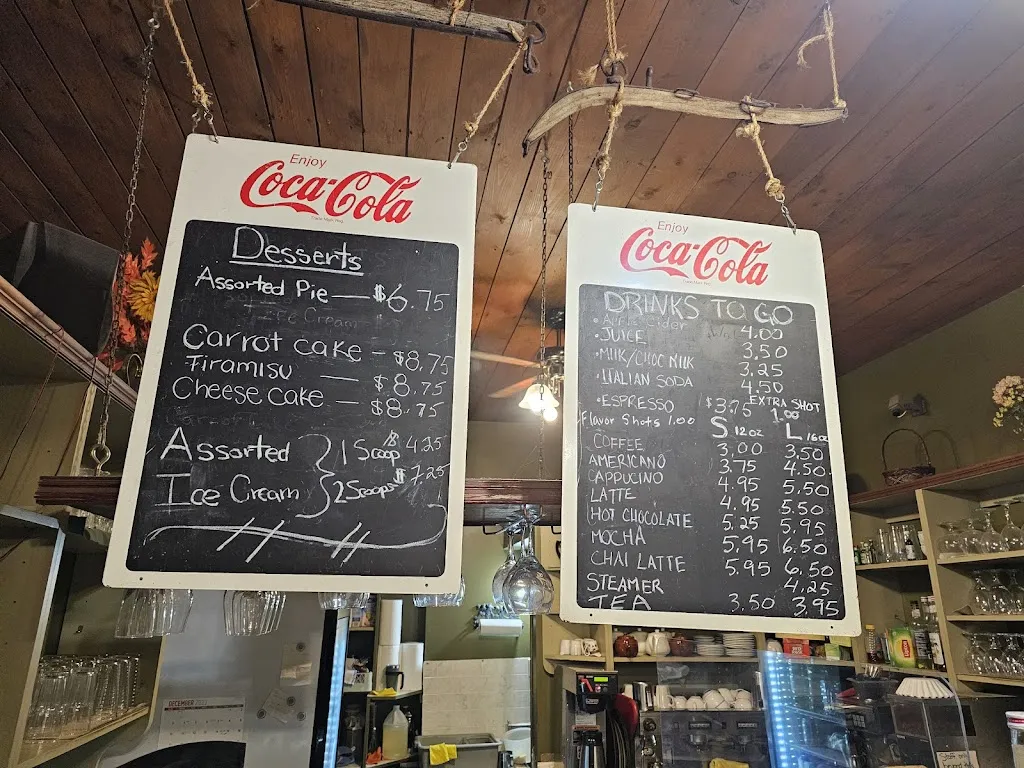 Enjoy
Coca-Cola
Desserts
Assorted Pie — $6.75
+ Ice Cream
Carrot cake – $8.75
Tiramisu — $8.75
Cheese cake — $8.75
Assorted Ice Cream
1 Scoop $4.25
2 Scoops $7.25
Enjoy
Coca-Cola
DRINKS TO GO
• Cider 4.00
• JUICE 3.50
• MILK/CHOC MILK 3.25
• ITALIAN SODA 4.50
• ESPRESSO $3.75 EXTRA SHOT 1.00
Flavor Shots 1.00 S 12oz L 16oz
COFFEE 3.00 3.50
AMERICANO 3.75 4.50
CAPPUCINO 4.95 5.50
LATTE 4.95 5.50
HOT CHOCOLATE 5.25 5.95
MOCHA 5.95 6.50
CHAI LATTE 5.95 6.50
STEAMER 4.25
TEA 3.50 3.95
DECEMBER